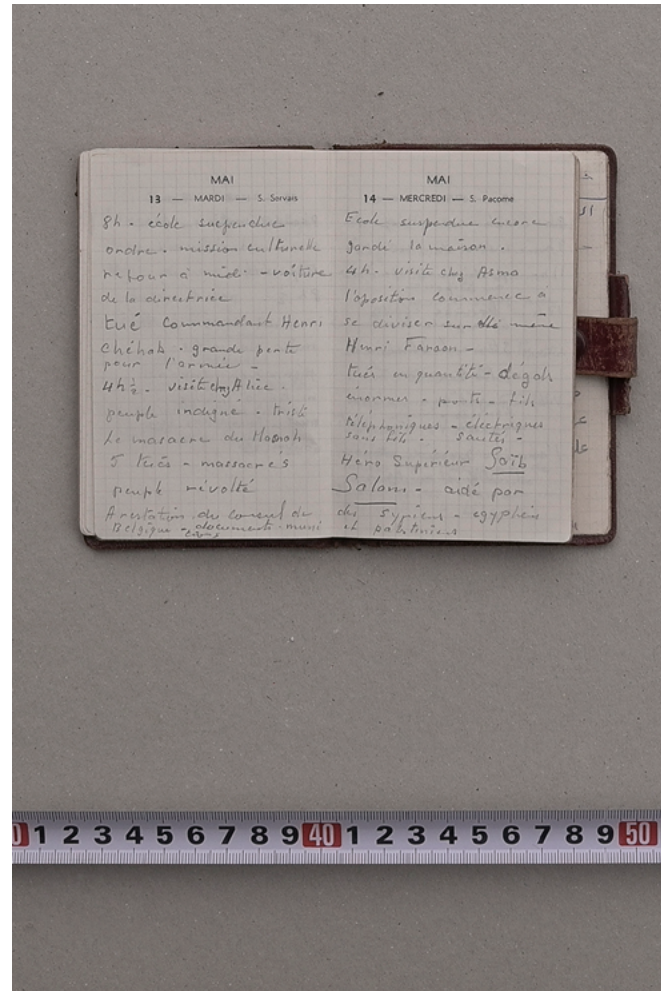 MAI
13 — MARDI — S. Servais
8h. école suspendue
ordre. mission culturelle
retour à midi - voiture
de la directrice
tué Commandant Henri
Chéhab. grande perte
pour l'armée -
4h ½. visite chez Alice.
peuple indigné. triste
Le masacre du
5 tués - massacrés
peuple révolté
Arestation du consul de
Belgique - documents. muni
MAI
14 — MERCREDI — S. Pacome
Ecole suspendue encore
gardé la maison.
4h. visite chez Asma
l'oposition commence à
se diviser sur même
Henri Faraon -
tués en quantité - dégats
énormes - ponts - fils
téléphoniques - électriques
sans fils. sautés -
Héro Supérieur Saïb
Salam - aidé par
des syriens - egyptiens
et palestiniens
0 1 2 3 4 5 6 7 8 9 40 1 2 3 4 5 6 7 8 9 50